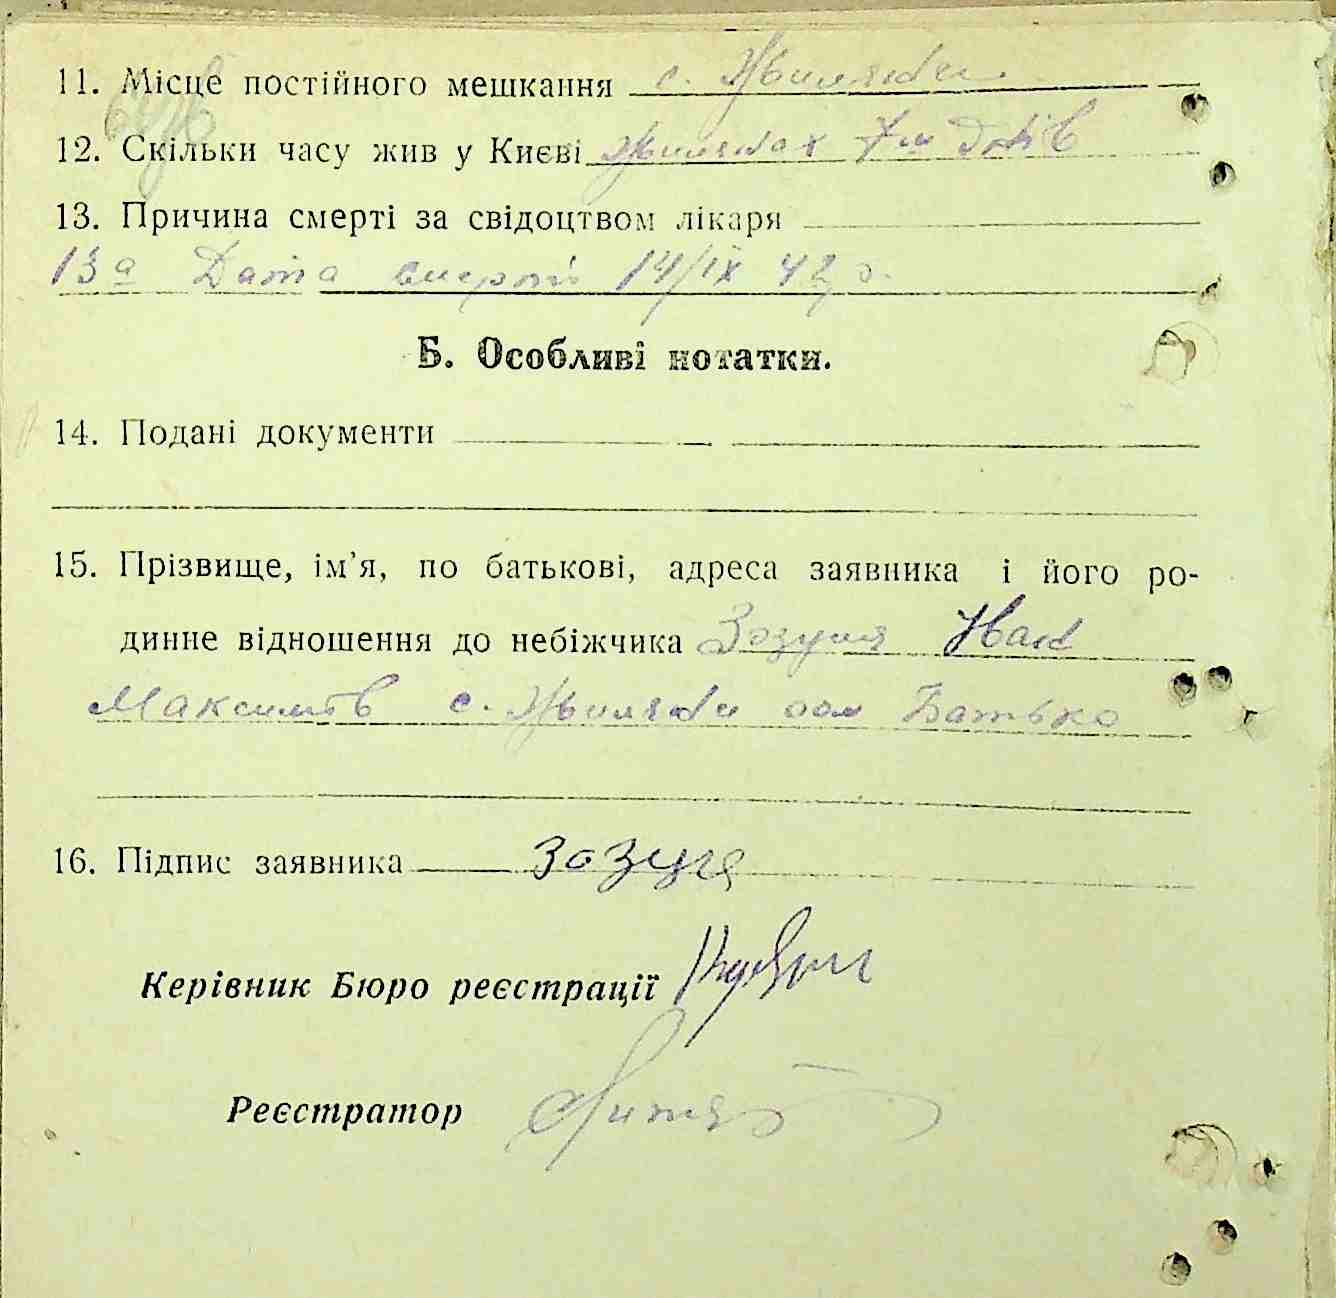 11. Місце постійного мешкання с. Жиляни
12. Скільки часу жив у Києві Жилянах 7м днів
13. Причина смерті за свідоцтвом лікаря
13а Дата смерті 14/IX 42 р.
Б. Особливі нотатки.
14. Подані документи
15. Прізвище, ім’я, по батькові, адреса заявника і його ро-
динне відношення до небіжчика Зозуля
Максимів с. Жиляни Батько
16. Підпис заявника Зозуля
Керівник Бюро реєстрації
Реєстратор